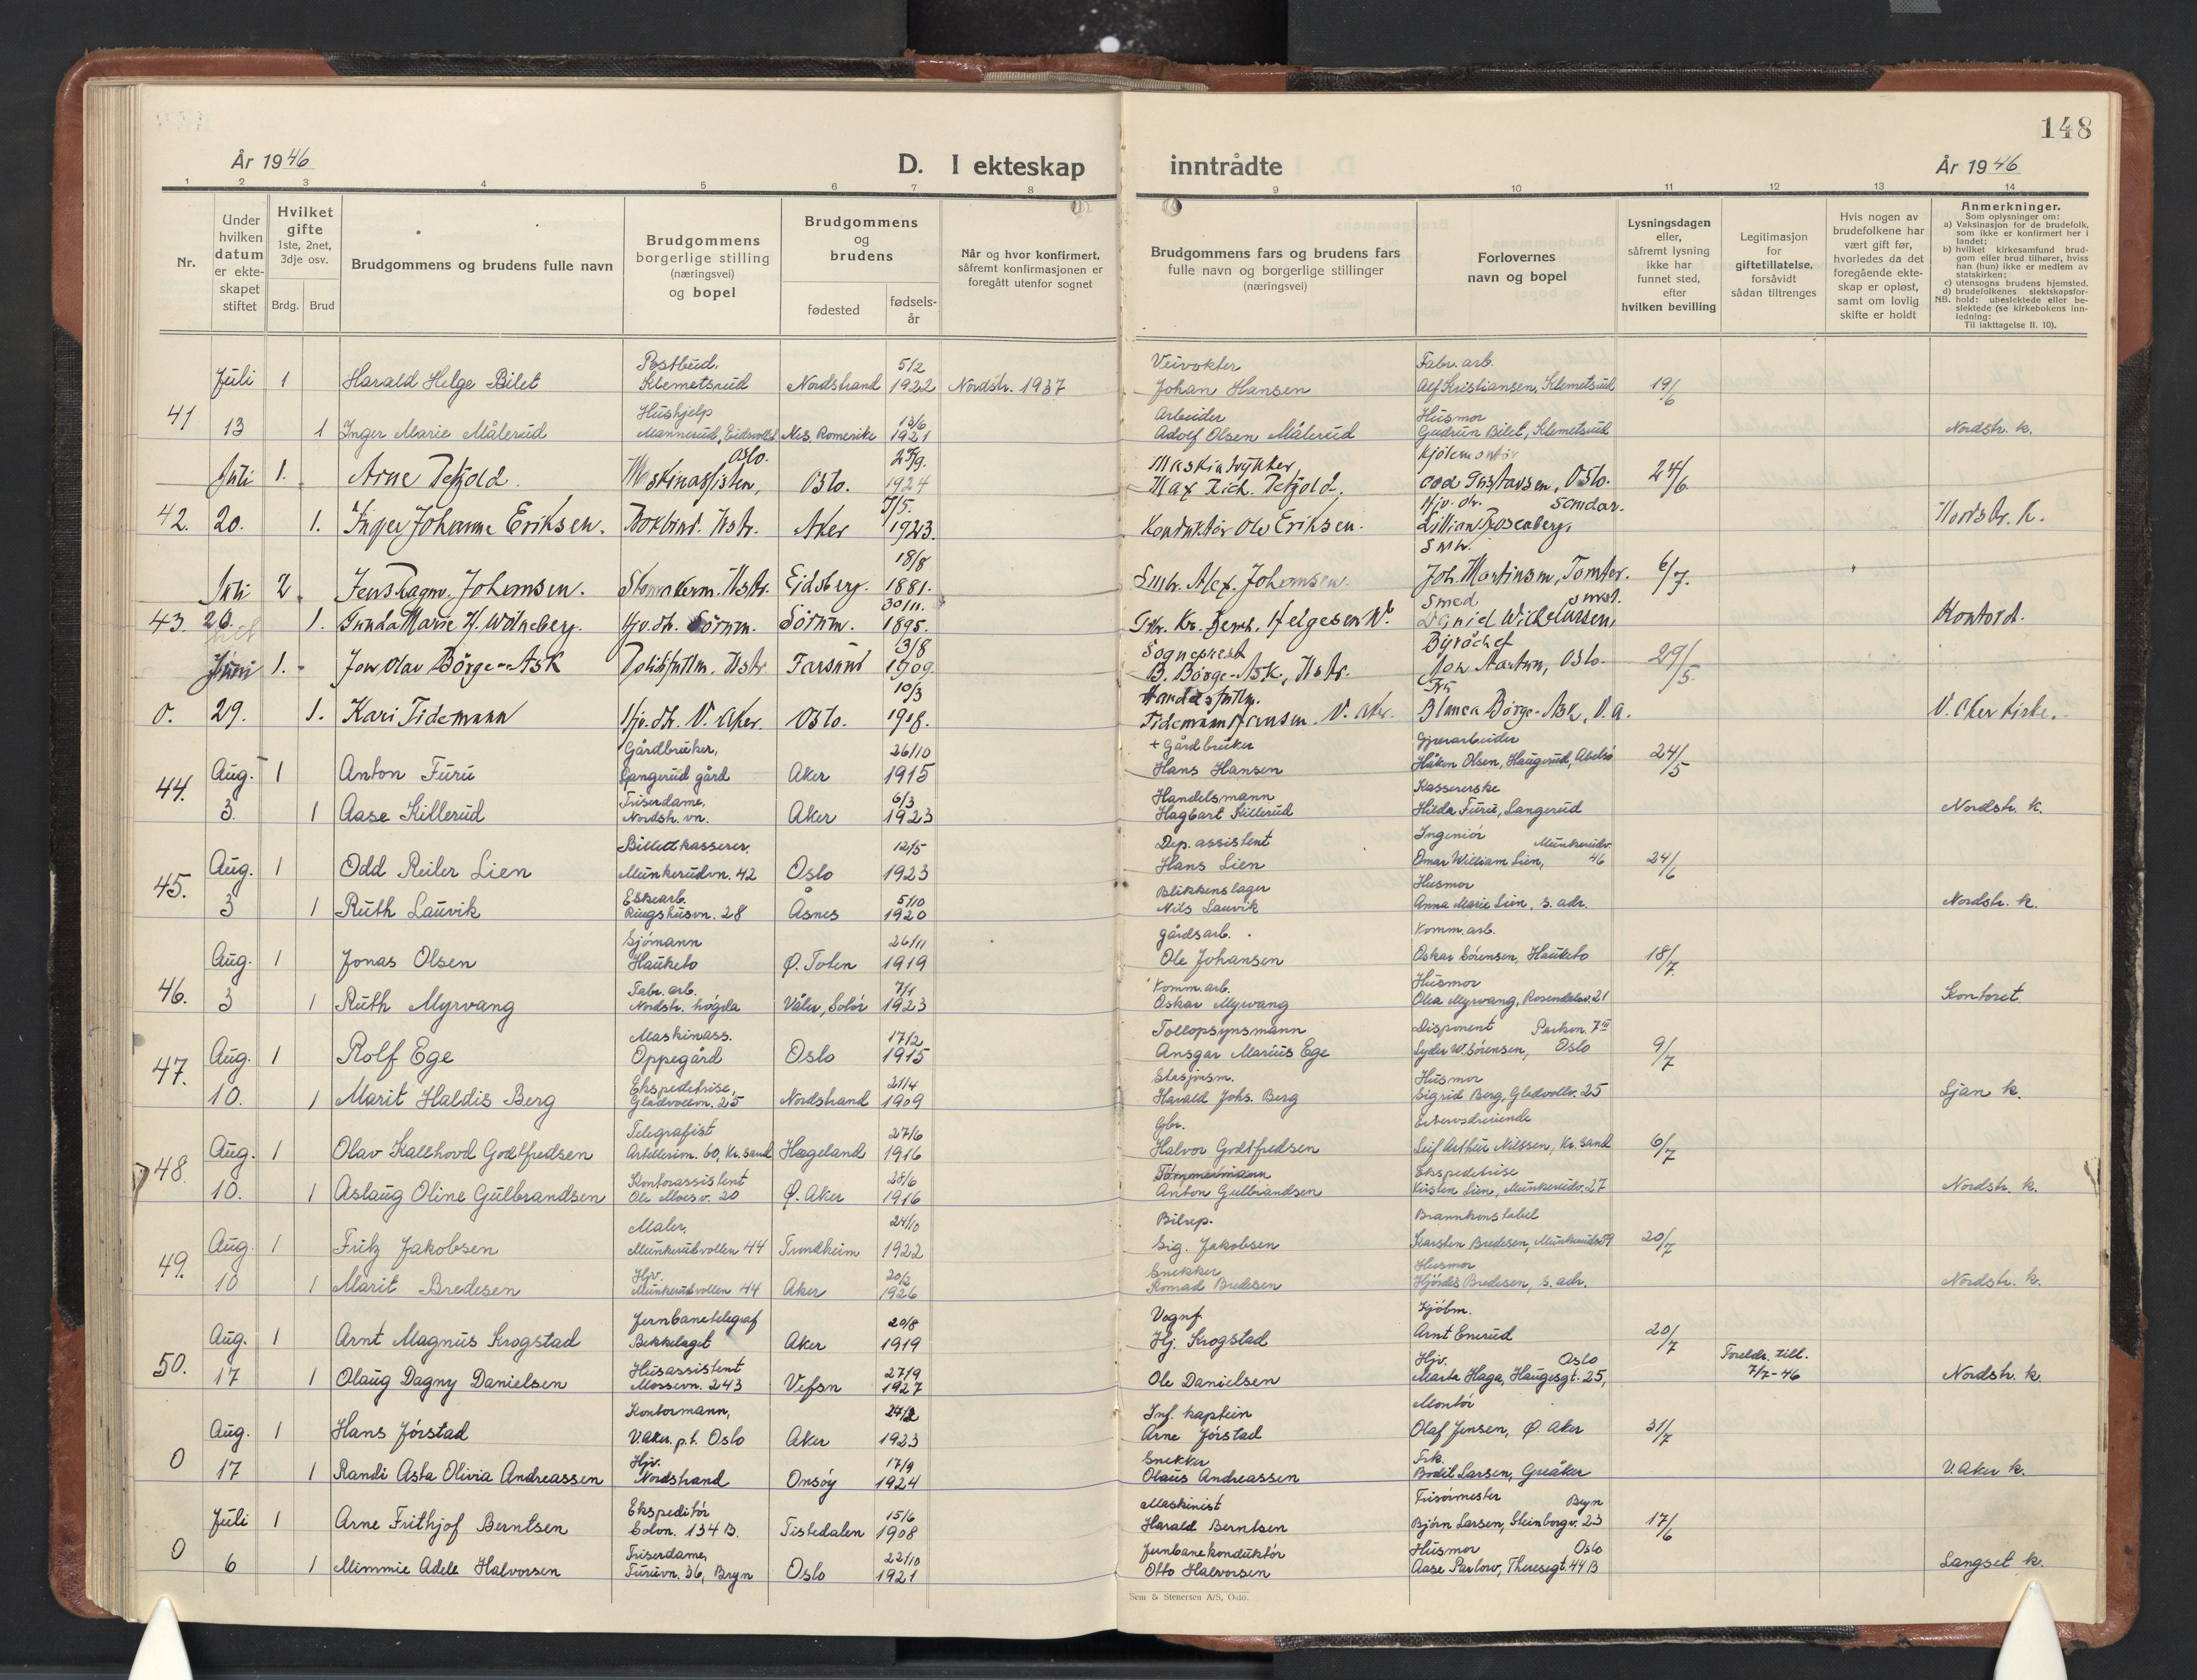 148
År 1946
D. I ekteskap inntrådte
År 1946
1 2 3 4 5 6 7 8 9 10 11 12 13 14
Nr.
Under hvilken datum er ekte-skapet stiftet
Hvilket gifte
1ste, 2net, 3dje osv.
Brdg. Brud
Brudgommens og brudens fulle navn
Brudgommens borgerlige stilling (næringsvei) og bopel
Brudgommens og brudens
fødested
fødsels-år
Når og hvor konfirmert, såfremt konfirmasjonen er foregått utenfor sognet
Brudgommens fars og brudens fars fulle navn og borgerlige stillinger (næringsvei)
Forlovernes navn og bopel
Lysningsdagen eller, såfremt lysning ikke har funnet sted, efter hvilken bevilling
Legitimasjon for giftetillatelse, forsåvidt sådan tiltrenges
Hvis nogen av brudefolkene har vært gift før, hvorledes da det foregående ekte-skap er opløst, samt om lovlig skifte er holdt
Anmerkninger.
Som oplysninger om:
a) Vaksinasjon for de brudefolk, som ikke er konfirmert her i landet;
b) hvilket kirkesamfund brud-gom eller brud tilhører, hvis han (hun) ikke er medlem av statskirken;
c) utensogns brudens hjemsted.
d) brudefolkenes slektskapsfor-
NB. hold: ubeslektede eller be-slektede (se kirkebokens inn-ledning:
Til iakttagelse II. 10).
Postbud. 5/2 Veivokter Fabr. arb.
Juli 1 Harald Helge Bilet Klemetsrud Nordstrand 1922 Nordstr. 1937 Johan Hansen Alf Kristiansen, Klemetsrud 19/6
41 Hushjelp 13/6 Arbeider Husmor
13 1 Inger Marie Målerud Mannerud, Eidsvoll Nes, Romerike 1921 Adolf Olsen Målerud Gudrun Bilet, Klemetsrud Nordstr. k.
Oslo.
Juli 1. Arne Petzold. Maskinassisten, Oslo. 1924 Maskintrykker Max Rich. Petzold, Odd Gustavsen, Oslo. 24/6
42. 20. 1. Inger Johanne Eriksen. Bokbind. Nstr. Aker 7/5. 1923. Konduktør Ole Eriksen. Hjv. dr. Lillian Rosenberg, Nordstr. k.
Juli 2. Jens Ragnv. Johansen. Skomakerm. Nstr. Eidsberg. 18/8 1881. Smbr. Alex. Johansen Joh. Martinsen, Tomter. 6/7.
43. 26. 1. Gunda Marie H. Wölneberg. Hjv. dr. Sörum. Sörum. 30/11. 1895. Smed Daniel Wilhelmsen, Kontord.
Juni 1. Jon Olav Börge-Ask Politifullm. Nstr Farsund 3/8 1909. Sogneprest B. Börge-Ask, Nstr. Byråchef Jon Aartun, Oslo. 29/5.
0. 29. 1. Kari Tidemann Hjv. dtr. V. Aker. Oslo. 10/3 1918. Tidemann Hansen V. Aker. Fru Blanca Börge-Ask, V.A. V. Aker kirke.
Gårdbruker, 26/10 + Gårdbruker
Aug. 1 Anton Furu Langerud gård Aker 1915 Hans Hansen Håkon Olsen, Haugerud, Abelsø 24/5
44. Friserdame, 6/3 Handelsmann Kassererske
3. 1 Aase Killerud Nordstr. vn. Aker 1923 Hagbart Killerud Hilda Furu, Langerud Nordstr. k.
Billettkasserer. 12/5 Dep. assistent Ingeniör Munkerudv.
Aug. 1 Odd Reiler Lien Munkerudvn. 42 Oslo 1923 Hans Lien Omar William Lien, 46 24/6
45. Eskearb. 5/10 Blikkenslager Husmor
3 1 Ruth Lauvik Ringshusvn. 28 Åsnes 1920 Nils Lauvik Anna Marie Lien, s. adr. Nordstr. k.
Sjömann 26/11 gårdsarb. Komm. arb.
Aug. 1 Jonas Olsen Hauketo Ø. Toten 1919 Ole Johansen Oskar Sörensen, Hauketo 18/7
46. Fabr. arb. 7/1 Komm. arb. Husmor
3 1 Ruth Myrvang Nordstr. högda Våler, Solör 1923 Oskar Myrvang Olea Myrvang, Rosendalsv. 21 Kontoret
Maskinass. 17/2 Tollopsynsmann Disponent Parkvn. 7 III
Aug. 1 Rolf Ege Oppegård Oslo 1915 Ansgar Marius Ege Lyder W. Sörensen, Oslo 9/7
47. Ekspeditrise, 21/4 Stasjonsm. Husmor
10. 1 Marit Haldis Berg Gladvollvn. 25 Nordstrand 1909 Harald Johs. Berg Sigrid Berg, Gladvollv. 25 Ljan k.
Telegrafist 27/6 Gbr. Ervervsdrivende
Aug. 1 Olav Kallhovd Godtfredsen Artillerim. 60, Kr. sand Hægeland 1916 Halvor Godtfredsen Leif Arthur Nilssen, Kr. sand 6/7
48. Kontorassistent 28/6 Tömmermann Ekspeditrise
10. 1 Aslaug Oline Gulbrandsen Ole Moes v. 20 Ø. Aker 1916 Anton Gulbrandsen Kirsten Lien, Munkerudv. 27 Nordstr. k.
Maler, 24/10 Bilrep. Brannkonstabel
Aug. 1 Fritz Jakobsen Munkerudvollen 44 Trondheim 1922 Sig. Jakobsen Karsten Bredesen, Munkerudv. 59 20/7
49. Hjv. 20/3 Snekker Husmor
10 1 Marit Bredesen Munkerudvollen 44 Aker 1926 Konrad Bredesen Hjördis Bredesen, s. adr. Nordstr. k.
Jernbanetelegraf 20/8 Vognf. Kjöbm.
Aug. 1 Arnt Magnus Krogstad Bekkelaget Aker 1919 Hj. Krogstad Arnt Enerud 20/7
50. Husassistent 27/9 Hjv. Oslo Foreldr. till.
17 1 Olaug Dagny Danielsen Mossevn. 243 Vefsn 1927 Ole Danielsen Marta Haga, Haugesgt. 25, 7/7-46 Nordstr. k.
Kontormann, 24/2 Inf. kaptein Montör
Aug. 1 Hans Jörstad V. Aker. p.t. Oslo Aker 1923 Arne Jörstad Olaf Jensen, Ø. Aker 31/7
0 Hjv. 17/9 Snekker Frk.
17 1 Randi Asta Olivia Andreassen Nordstrand Onsöy 1924 Olaus Andreassen Bodil Larsen, Greåker V. Aker k.
Ekspeditör 15/6 Maskinist Frisörmester Bryn
Juli 1 Arne Frithjof Berntsen Solvn. 134 B. Tistedalen 1908 Harald Berntsen Björn Larsen, Steinborgv. 23 17/6
0 Friserdame, 22/10 Jernbanekonduktör Husmor Oslo
6 1 Mimmie Adele Halvorsen Furuvn. 36, Bryn Oslo 1921 Otto Halvorsen Aase Parlow, Theresegt. 44 B Langset k.
Sem & Stenersen A/S, Oslo.